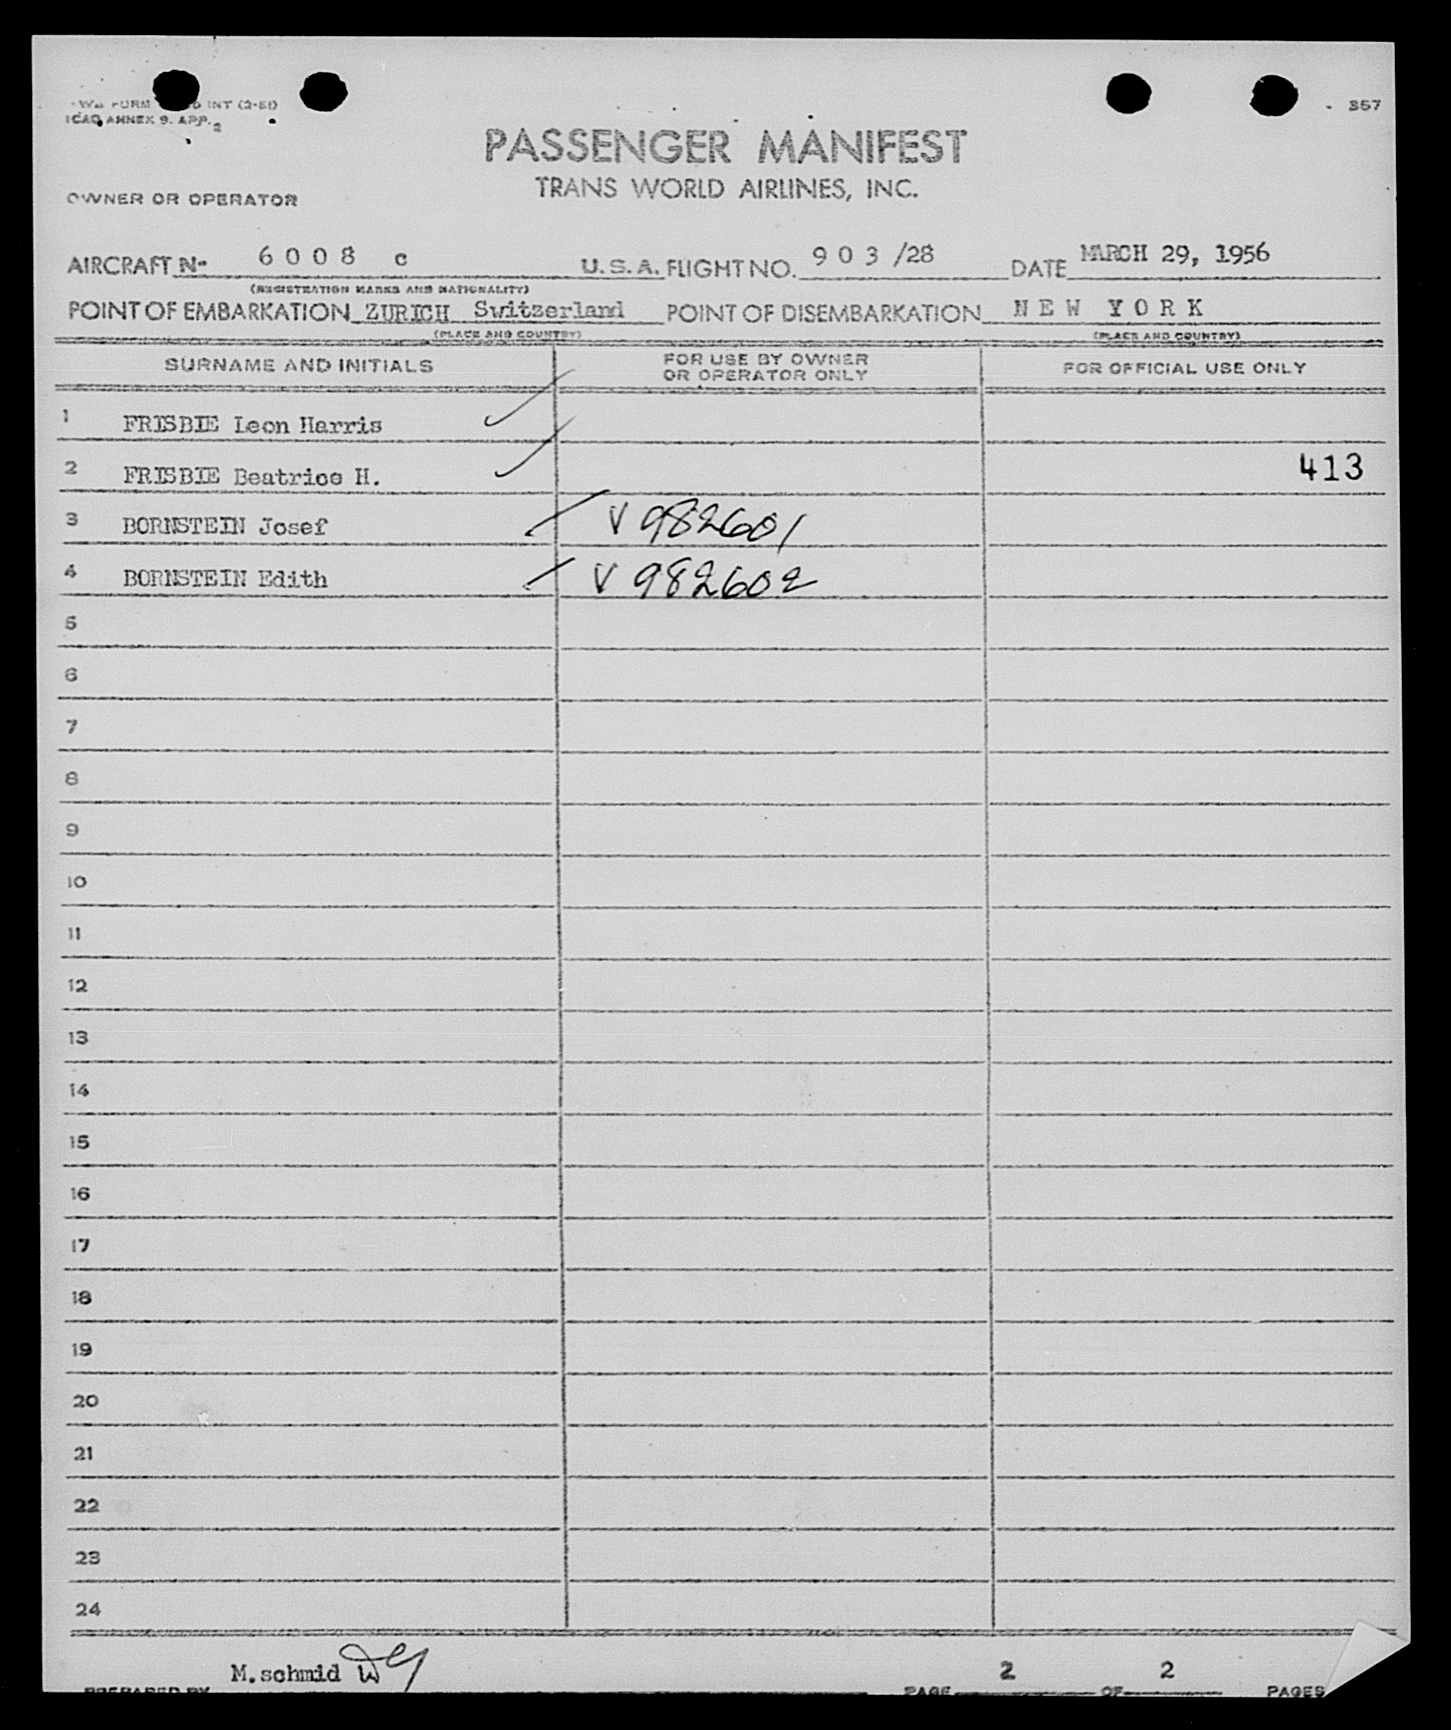 INT (2-51)
357
ICAO ANNEX 9. APP. 2
PASSENGER MANIFEST
TRANS WORLD AIRLINES, INC.
OWNER OR OPERATOR
AIRCRAFT No 6 0 0 8 c U.S.A. FLIGHT NO. 9 0 3 /28 DATE MARCH 29, 1956
(REGISTRATION MARKS AND NATIONALITY)
POINT OF EMBARKATION ZURICH Switzerland POINT OF DISEMBARKATION N E W Y O R K
(PLACE AND COUNTRY) (PLACE AND COUNTRY)
SURNAME AND INITIALS FOR USE BY OWNER OR OPERATOR ONLY FOR OFFICIAL USE ONLY
1 FRISBIE Leon Harris
2 FRISBIE Beatrice H. 413
3 BORNSTEIN Josef V 982601
4 BORNSTEIN Edith V 982602
5
6
7
8
9
10
11
12
13
14
15
16
17
18
19
20
21
22
23
24
M.schmid 2 2
PREPARED BY PAGE OF PAGES